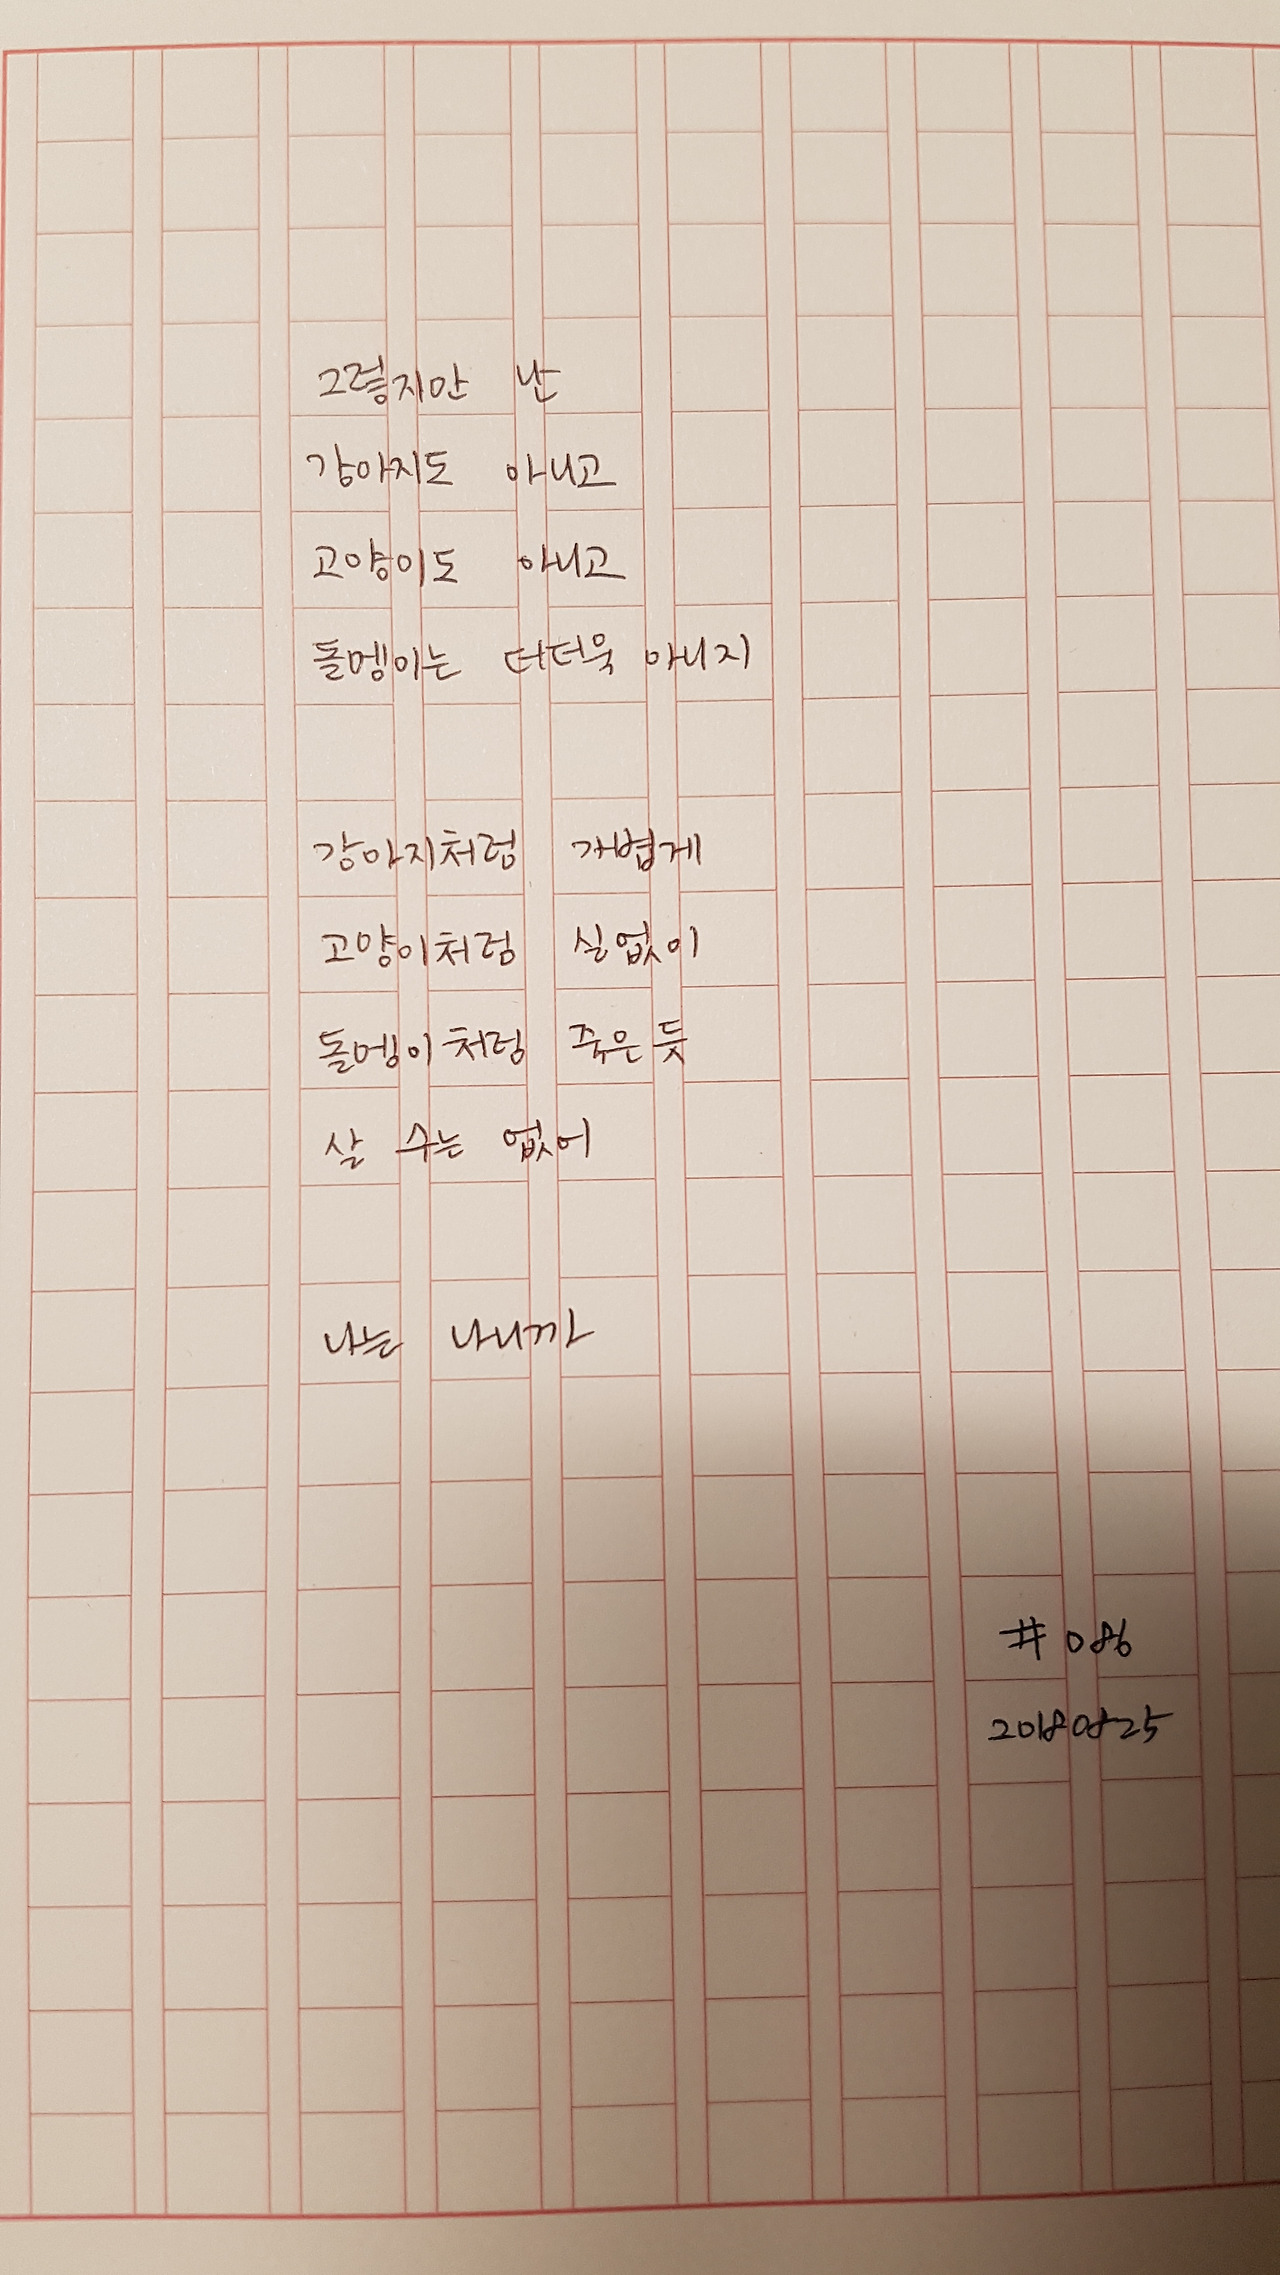 그렇지만 난
강아지도 아니고
고양이도 아니고
돌멩이는 더더욱 아니지
강아지처럼 가볍게
고양이처럼 실없이
돌멩이처럼 죽은듯
살 수는 없어
나는 나니까
#086
20180825